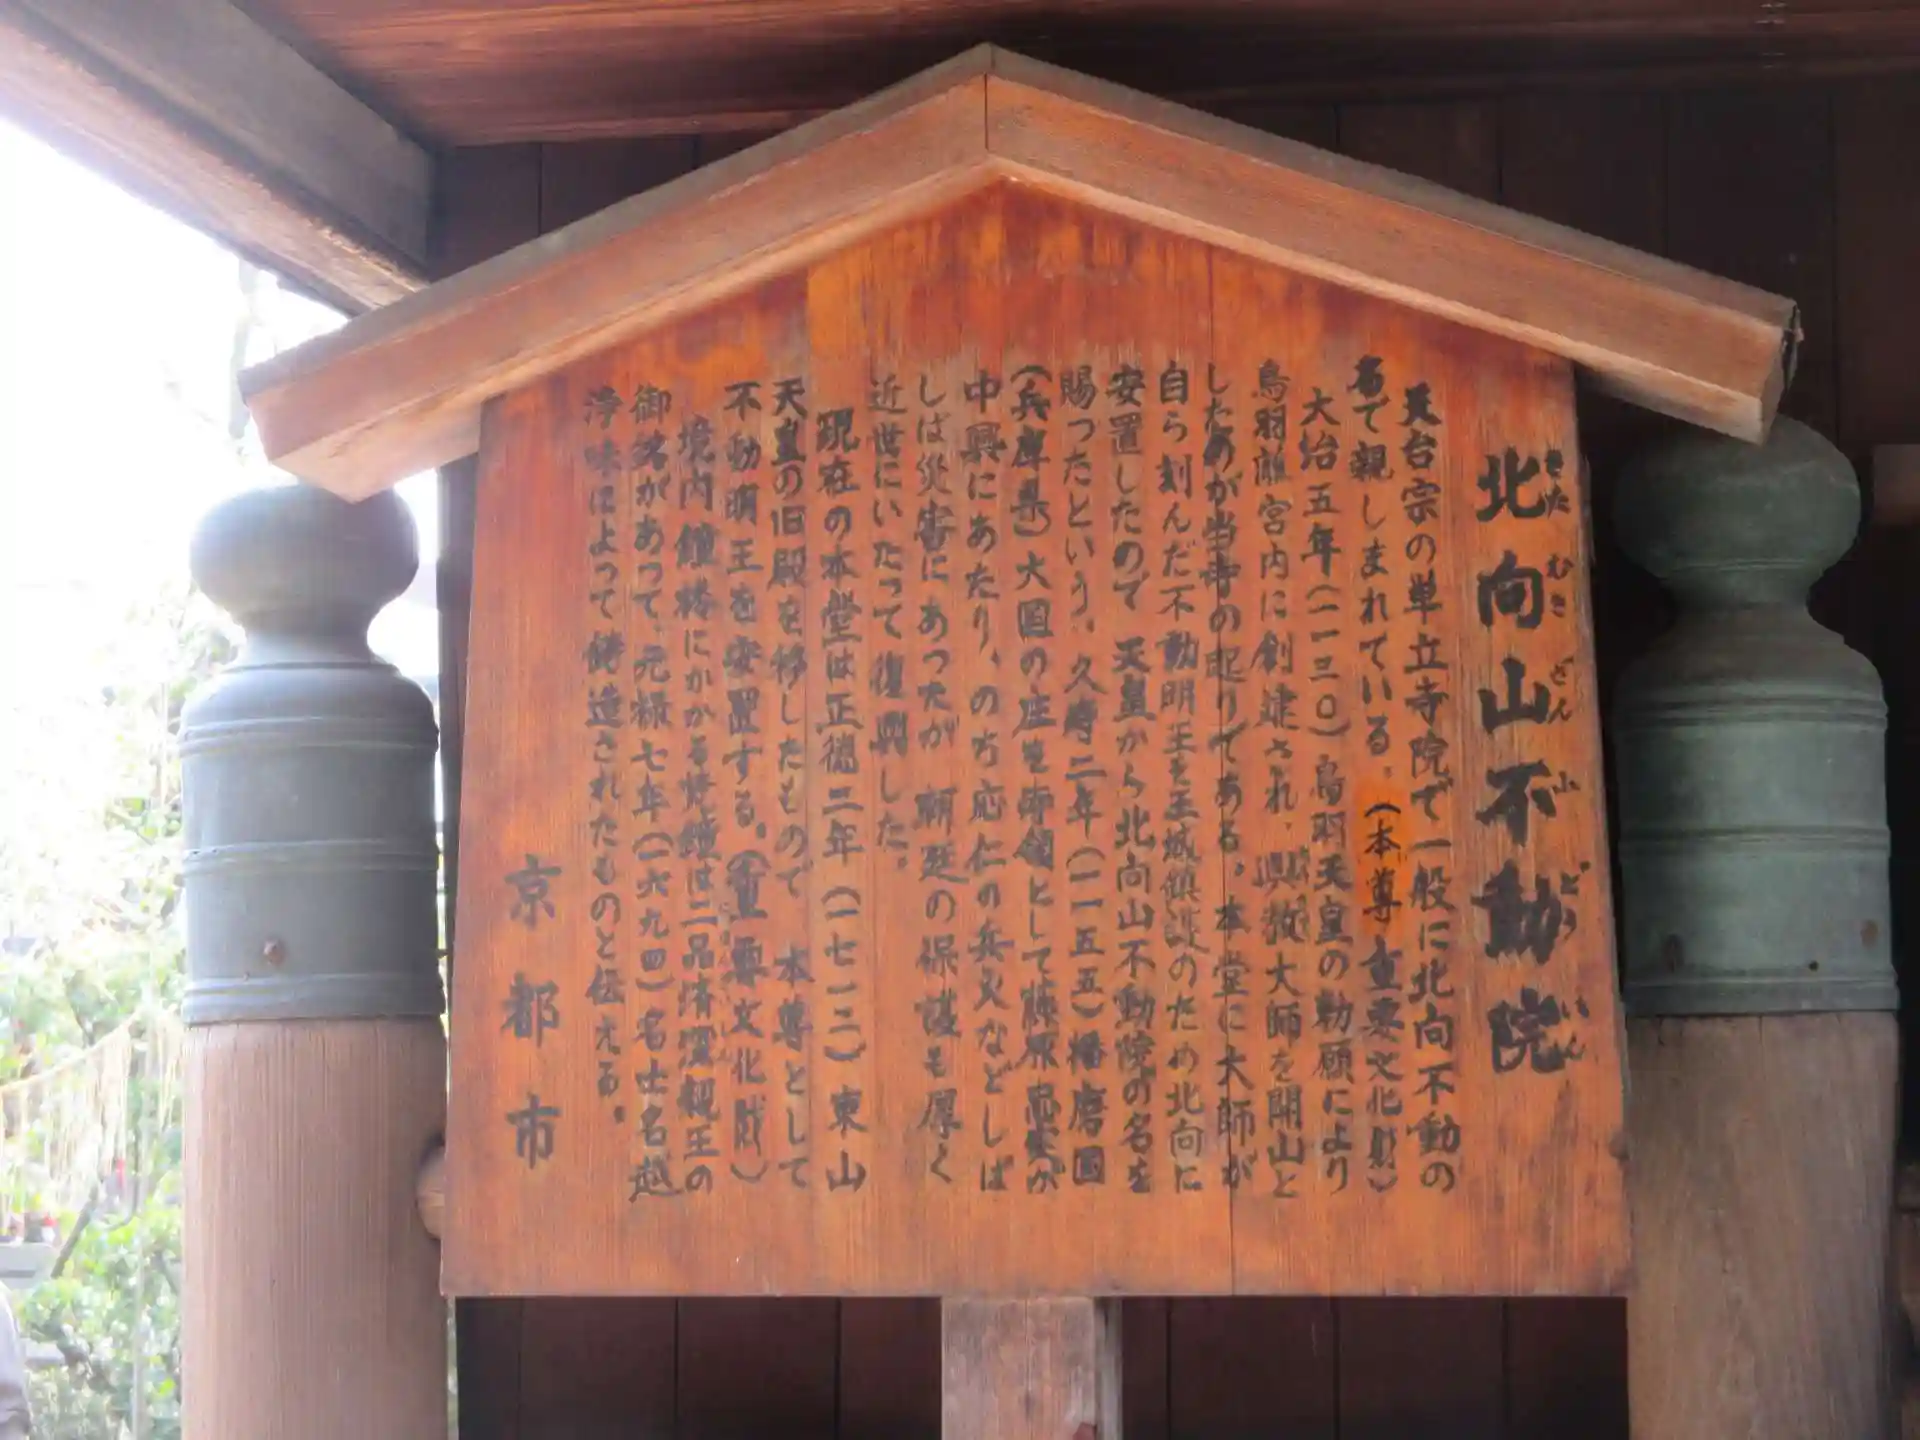 北向山不動院
きた むき ざん ふ どう いん
天台宗の単立寺院で一般に北向不動の
名で親しまれている。(本尊 重要文化財)
大治五年(一一三〇)鳥羽天皇の勅願により
鳥羽離宮内に創建され、興教大師を開山と
したのが当寺の起りである。本堂に大師が
自ら刻んだ不動明王を王城鎮護のため北向に
安置したので 天皇から北向山不動院の名を
賜ったという。久寿二年(一一五五)播磨国
(兵庫県)大国の庄を寺領として藤原忠実が
中興にあたり、のち応仁の兵火などしば
しば災害にあったが 朝廷の保護も厚く
近世にいたって復興した。
現在の本堂は正徳二年(一七一二)東山
天皇の旧殿を移したもので 本尊として
不動明王を安置する。(重要文化財)
境内鐘楼にかかる梵鐘は二品済深親王の
御銘があって、元禄七年(一六九四)名士名越
浄味によって鋳造されたものと伝える。
京都市